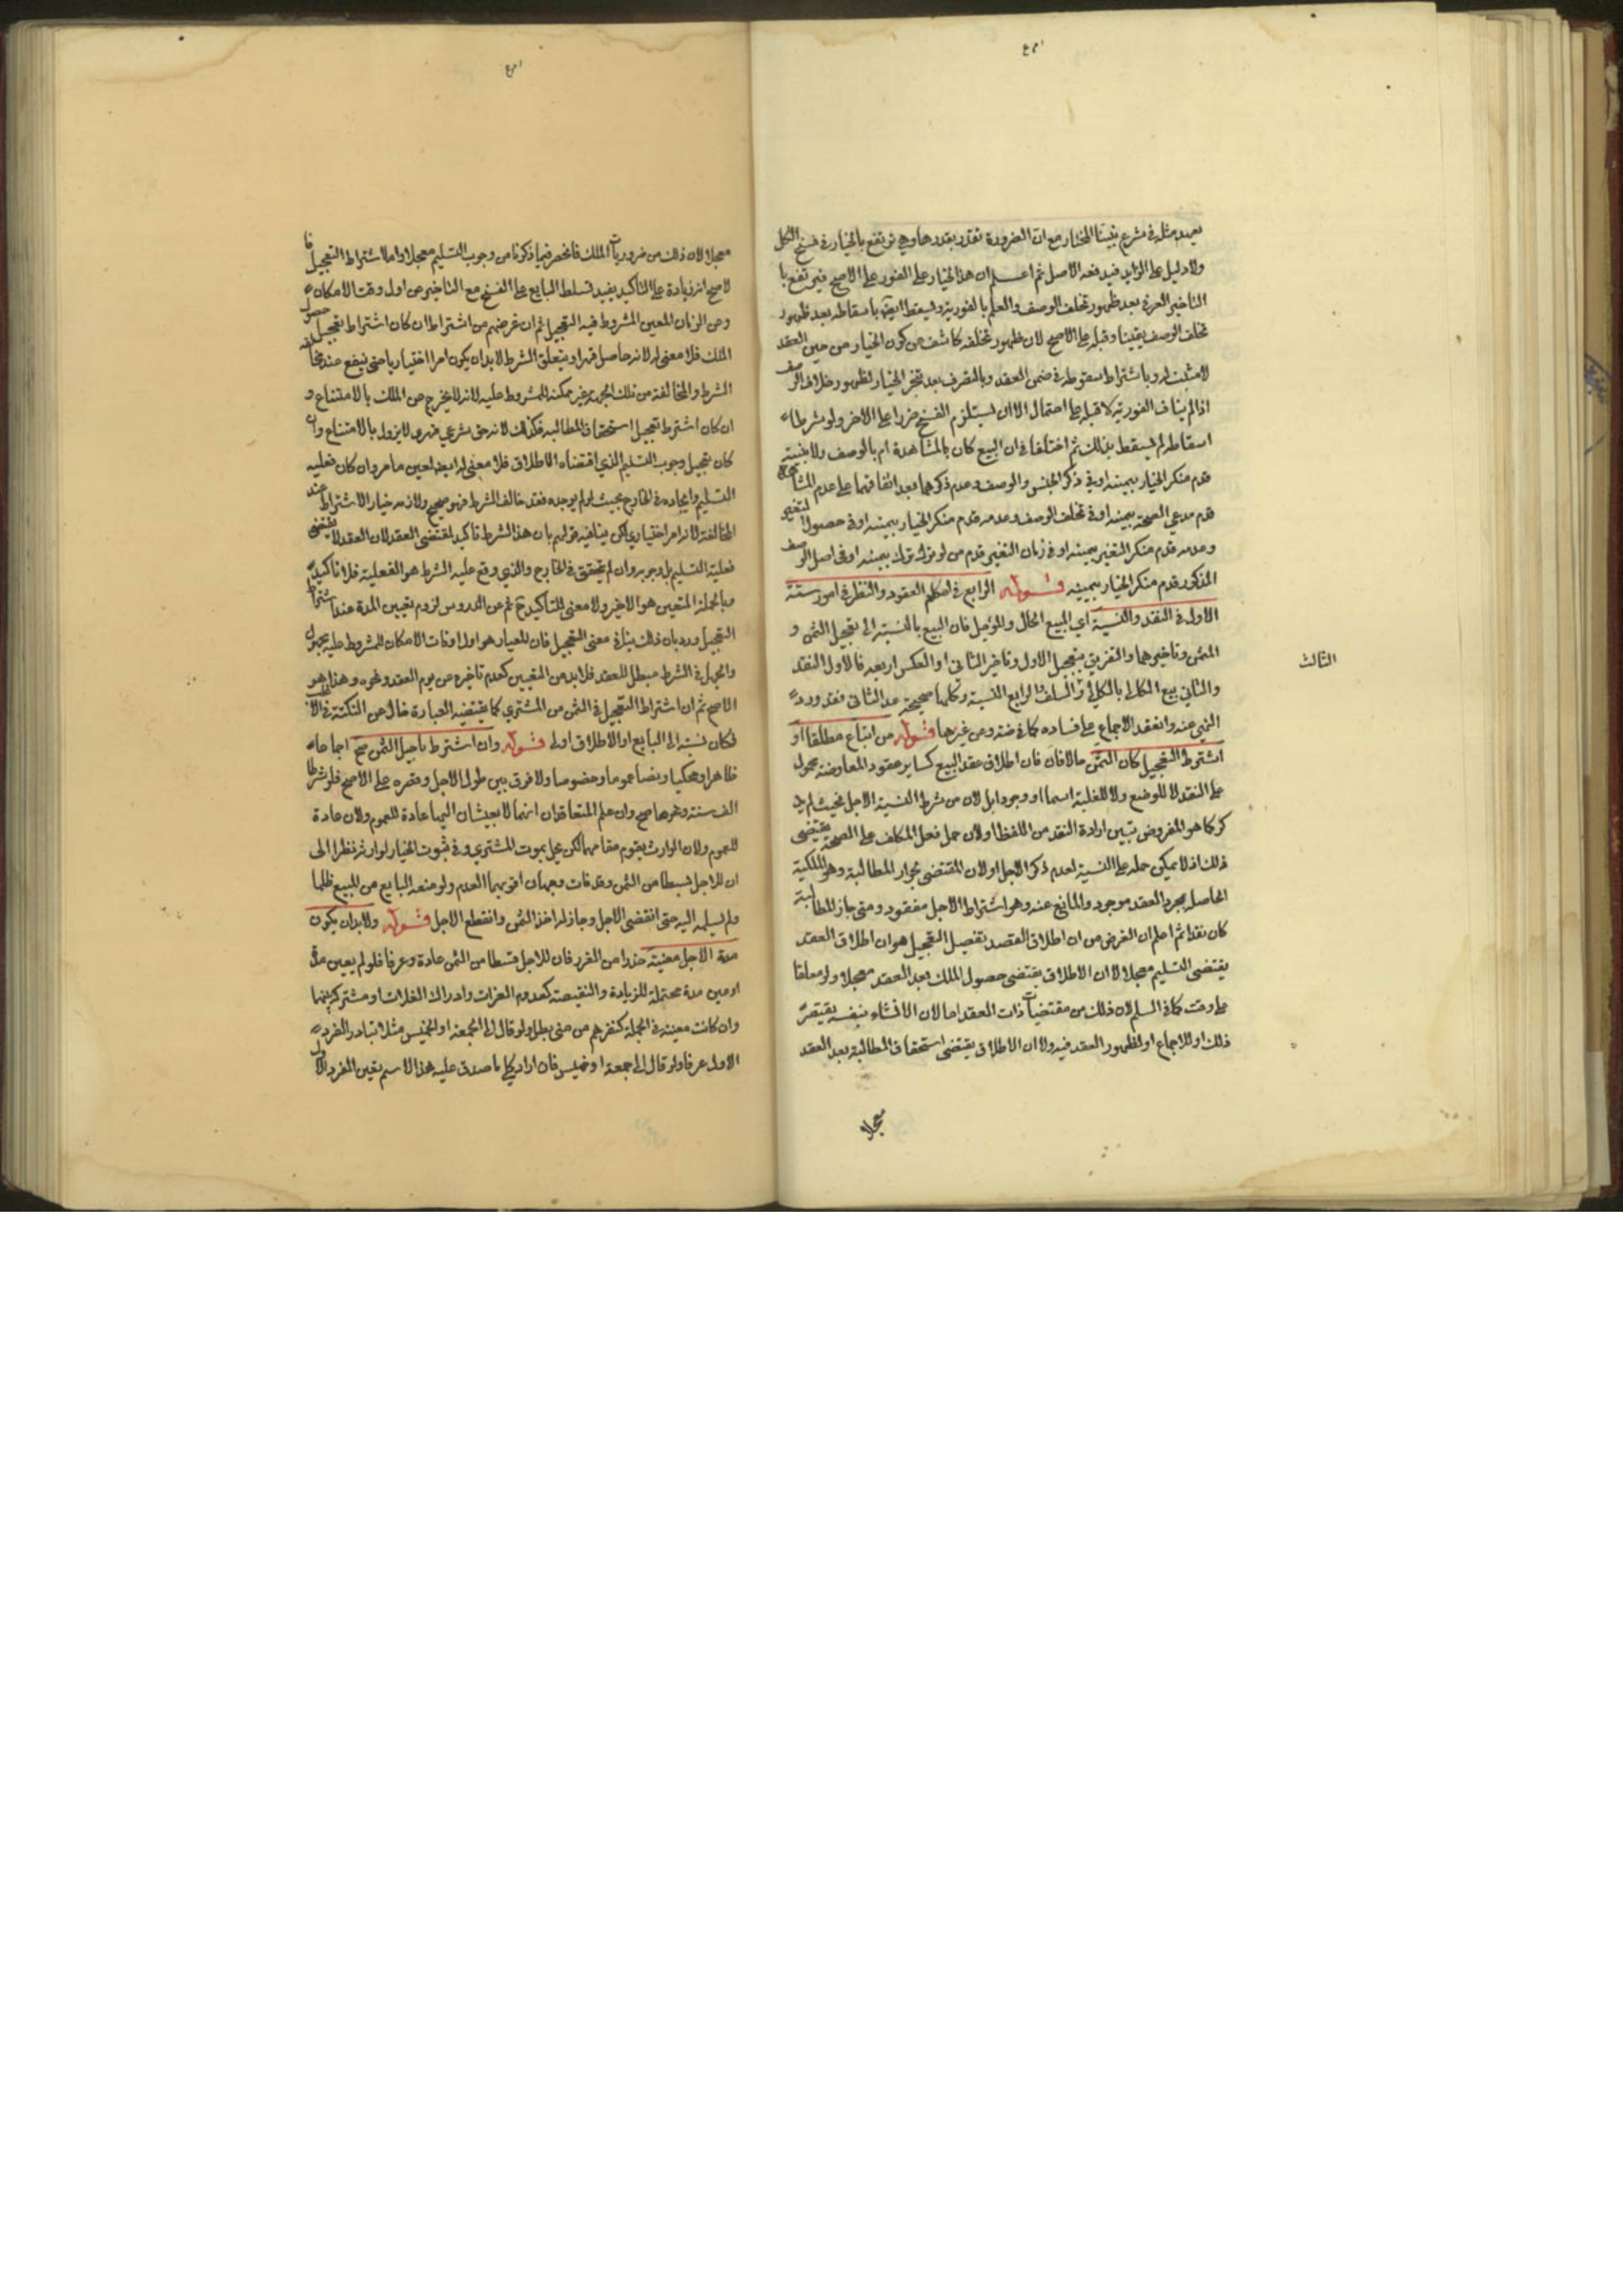 يعهد مثله في شرع تبينا المختار مع ان الضرورة تقدر بقدرها وهي ترتفع بالخيار في فسخ الكل
ولا دليل على الزايد فيدفعه الاصل ثم اعلم ان هذا الخيار على الفور على الاصح فيرتفع با
التاخير العرفي بعد ظهور تخلف الوصف والعلم بالفورية وليسقط ايضا باسقاطه بعد ظهور
تخلف الوصف يقينا وقبله على الاصح لان ظهور تخلفه كاشف عن كون الخيار من حين العقد
لا مثبت له وباشتراط سقوطه في ضمن العقد وبالتصرف بعد تنجز الخيار لظهور خلاف الوصف
اذا لم يناف الفورية لا قبله على احتمال الا ان يستلزم الفسخ ضررا على الاخر ولو شرطا
اسقاطه لم يسقط بذلك ثم اختلفا في ان البيع كان بالمشاهدة ام بالوصف ولا بينة
قدم منكر الخيار بيمينه او في ذكر الجنس والوصف وعدم ذكرهما بعد اتفاقهما على عدم المشاهدة
قدم مدعي الصحة بيمينه او في تخلف الوصف وعدمه قدم منكر الخيار بيمينه او في حصول التغير
وعدمه قدم منكر التغير بيمينه او في زمان التغير قدم من لو ترك ترك بيمينه او في اصل الوصف
المذكور قدم منكر الخيار بيمينه قوله الرابع في احكام العقود والنظر في امور ستة
الاول في النقد والنسية اي البيع الحال والمؤجل فان البيع بالنسبة الى تعجيل الثمن و
المثمن وتاخيرهما والتفريق بتعجيل الاول وتاخير الثاني او العكس اربعة فالاول النقد
الثالث
والثاني بيع الكالي بالكالي والسلف الرابع النسية وكلها صحيحة عدا الثاني فقد ورد
النهي عنه وانعقد الاجماع على فساده كما عنه وعن غيرها قوله من ابتاع مطلقا او
اشترط التعجيل كان الثمن حالا فان اطلاق عقد البيع كساير عقود المعاوضة محمول
على النقد لا للوضع ولا للغلبة اسما او وجودا بل لان من شرط النسية الاجل فحيث لم يذ
كر كما هو المفروض تبين ارادة النقد من اللفظ او لان حمل فعل المكلف على الصحة يقتضي
ذلك اذ لا يمكن حمله على النسية لعدم ذكر الاجل او لان المقتضي لجواز المطالبة وهو الملكية
الحاصلة بمجرد العقد موجود والمانع عنه وهو اشتراط الاجل مفقود ومتى جاز المطالبة
كان نقدا ثم اعلم ان الغرض من ان اطلاق العقد يقتضي التعجيل هو ان اطلاق العقد
يقتضي التسليم معجلا لا ان الاطلاق يقتضي حصول الملك بعد العقد معجلا ولو معلقا
على وقت كما في السلم لان ذلك من مقتضيات ذات العقد اما لان الانشاء بنفسه يقتضي
ذلك او للاجماع او لظهور العقد فيه ولا ان الاطلاق يقتضي استحقاق المطالبة بعد العقد
معجلا
معجلا لان ذلك من ضروريات الملك فانحصر فيما ذكرنا من وجوب التسليم معجلا واما اشتراط التعجيل فا
لاصح انه زيادة على التاكيد يفيد تسلط البايع على الفسخ مع التاخير عن اول وقت الامكان
وعن الزمان المعين المشروط فيه التعجيل ثم ان غرضهم من اشتراط ان كان اشتراط تعجيل حصول
الملك فلا معنى له لانه حاصل قهرا ومتعلق الشرط لا بد ان يكون امرا اختياريا حتى ينفع عند مخالفة
الشرط والمخالفة من تلك الجهة غير ممكنة للمشروط عليه لانه لا يخرج عن الملك بالامتناع و
ان كان اشتراط تعجيل استحقاق المطالبة فكذلك لانه حق شرعي قهري لا يزول بالامتناع وان
كان تعجيل وجوب التسليم الذي اقتضاه الاطلاق فلا معنى له ايضا لعين ما مر وان كان فعلية
التسليم وايجاده في الخارج بحيث لو لم يوجده فقد خالف الشرط فهو صحيح ولازمه خيار الاشتراط عند
المخالفة لانه امر اختياري لكن ينافيه قولهم بان هذا الشرط تاكيد لمقتضى العقد لان العقد لا يقتضي
فعلية التسليم بل وجوبه وان لم يتحقق في الخارج والذي وقع عليه الشرط هو الفعلية فلا تاكيد
وبالجملة المتعين هو الاخير ولا معنى للتاكيد ح ثم عن الدروس لزوم تعيين المدة عند اشتراط
التعجيل ورد بان ذلك ينافي معنى التعجيل فان المعيار هو اول اوقات الامكان للمشروط عليه مجهول
والجهل في الشرط مبطل للعقد فلا بد من التعيين كعدم تاخيره عن يوم العقد ونحوه وهذا هو
الاصح ثم ان اشتراط التعجيل في الثمن من المشتري كما يقتضيه العبارة خال عن النكتة
فكان نسبته الى البايع او الاطلاق اولى قوله وان اشترط تاجيل الثمن صح اجماعا
ظاهرا ومحكيا ونصا عموما وخصوصا ولا فرق بين طول الاجل وقصره على الاصح فلو شرطا
الف سنة ونحوها صح وان علم المتعاقدان انهما لا يعيشان اليها عادة للعموم ولان عادة
للعموم ولان الوارث يقوم مقامهما لكن يحل بموت المشتري وفي ثبوت الخيار لوارثه نظرا الى
ان للاجل قسطا من الثمن وقد فات وجهان اقويهما العدم ولو منعه البايع من المبيع ظلما
ولم يسلمه اليه حتى انقضى الاجل وجاز له اخذ الثمن وانقطع الاجل قوله ولا بد ان يكون
مدة الاجل معينة حذرا من الغرر فان للاجل قسطا من الثمن عادة وعرفا فلو لم يعين مدة
او عين مدة محتملة للزيادة والنقيصة كقدوم الغزاة وادراك الغلات او مشتركة بينهما
وان كانت معينة في الجملة كنفرهم من منى بطل ولو قال الى الجمعة او الخميس مثلا تبادر الفرد
الاول عرفا ولو قال الى جمعة او خميس فان اراد كلي ما صدق عليه هذا الاسم تعين الفرد الاول